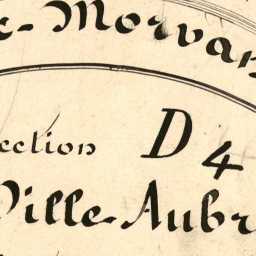 c-Morvan
ection D4
Ville-Aubr